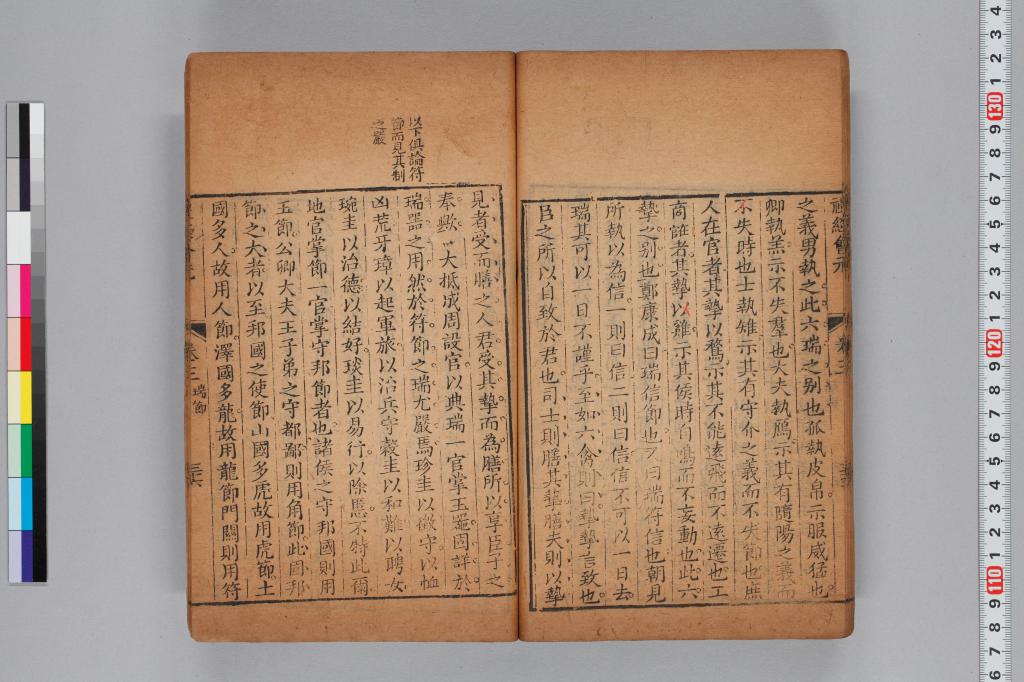 之義男執之此六瑞之别也孤執皮帛示服威猛也
卿執羔示不失羣也大夫執鴈示其有隨陽之義而
不失時也士執雉示其有守介之義而不失節也庶
人在官者其摯以鶩示其不能遠飛而不遠遷也工
商雖者其摯以雞示其俟時自鳴而不妄動也此六
摯之别也鄭康成曰瑞信節也又曰瑞符信也朝見
所執以為信一則曰信二則曰信信不可以一日去
瑞其可以一日不謹乎至如六禽則曰摯摯言致也
臣之所以自致於君也司士則膳其摯膳夫則以摯
以下俱論符
節而見其制
之嚴
見者受而膳之人君受其摯而為膳所以享臣子之
奉歟 大抵成周設官以典瑞一官掌玉器固詳於
瑞器之用然於符節之瑞尤嚴焉珍圭以徵守以恤
凶荒牙璋以起軍旅以治兵守榖圭以和難以聘女
琬圭以治德以結好琰圭以易行以除慝不特此爾
地官掌節一官掌守邦節者也諸侯之守邦國則用
玉節公卿大夫王子弟之守都鄙則用角節此固邦
節之大者以至邦國之使節山國多虎故用虎節土
國多人故用人節澤國多龍故用龍節門關則用符
卷三 瑞節